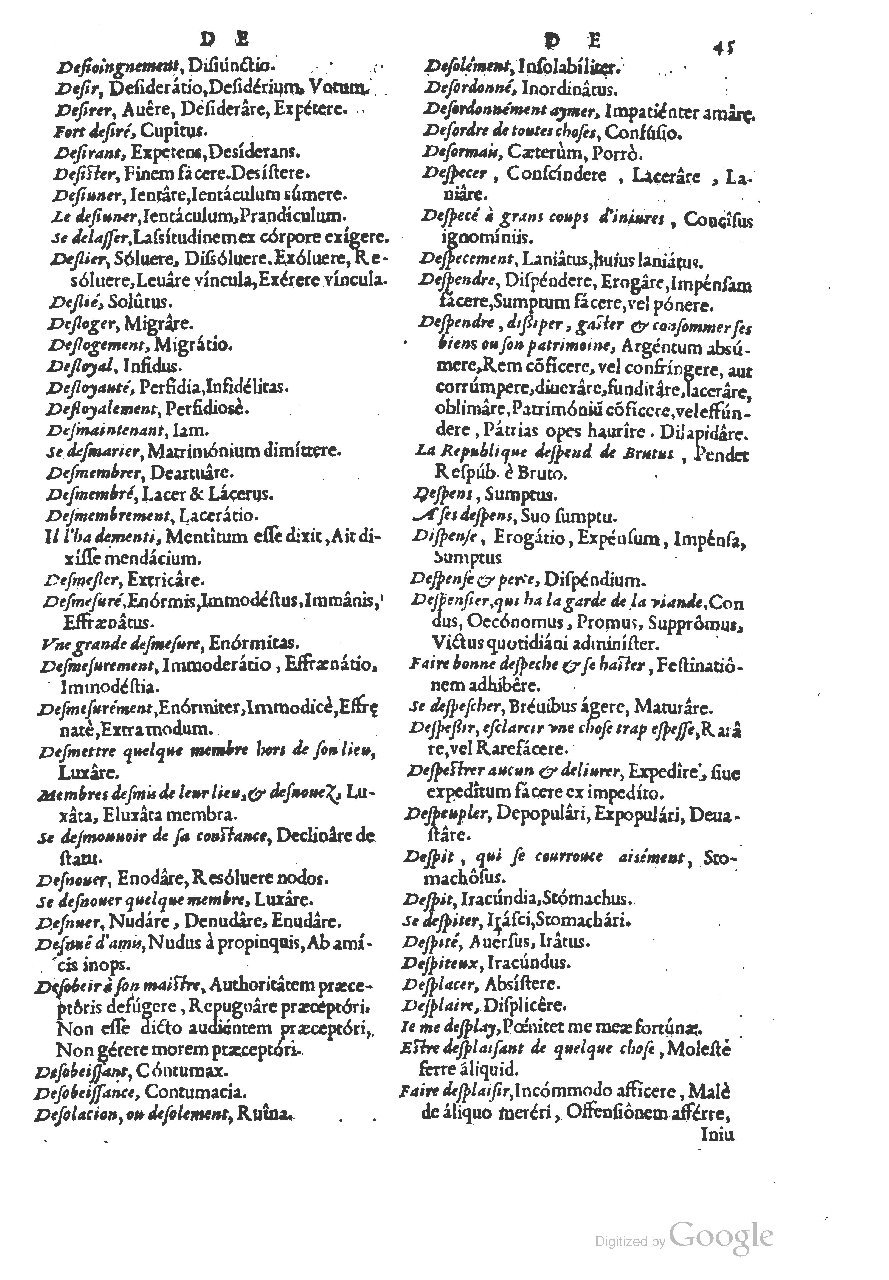 D E
Deſioingnement, Diſiúnctio.
Deſir, Deſiderátio, Deſidérium, Votum.
Deſirer, Auêre, Deſiderâre, Expétere.
Fort deſiré, Cupîtus.
Deſirant, Expetens, Deſíderans.
Deſiſter, Finem fácere. Deſíſtere.
Deſiuner, Ientâre, Ientáculum súmere.
Le deſiuner, Ientáculum, Prandículum.
Se delaſſer, Laſsitúdinem ex córpore exígere.
Deſlier, Sóluere, Diſsóluere. Exóluere, Re-
sóluere, Leuâre víncula, Exérere víncula.
Deſlié, Solûtus.
Deſloger, Migrâre.
Deſlogement, Migrátio.
Deſloyal, Infidus.
Deſloyauté, Perfidia, Infidélitas.
Deſloyalement, Perfidiosè.
Deſmaintenant, Iam.
Se deſmarier, Matrimónium dimíttere.
Deſmembrer, Deartuâre.
Deſmembré, Lacer & Lácerus.
Deſmembrement, Lacerátio.
Il l'ha dementi, Mentîtum eſſe dixit, Ait di-
xiſſe mendácium.
Deſmeſler, Extricâre.
Deſmeſuré, Enórmis, Immodéſtus, Immânis,
Effrænâtus.
Vne grande deſmeſure, Enórmitas.
Deſmeſurement, Immoderátio, Effrænátio,
Immodéſtia.
Deſmeſurément, Enórmiter, Immodicè, Effrę
natè, Extra modum.
Deſmettre quelque membre hors de ſon lieu,
Luxâre.
Membres deſmis de leur lieu, & deſnouez, Lu-
xâta, Eluxâta membra.
Se deſmouuoir de ſa conſtance, Declinâre de
ſtatu.
Deſnouer, Enodâre, Resóluere nodos.
Se deſnouer quelque membre, Luxâre.
Deſnuer, Nudáre, Denudâre, Enudâre.
Deſnué d'amis, Nudus à propinquis, Ab amí-
cis inops.
Deſobeir à ſon maiſtre, Authoritâtem præce-
ptóris defúgere, Repugnâre præceptóri,
Non eſſe dicto audiéntem præceptóri,
Non gérere morem præceptóri.
Deſobeiſſant, Cóntumax.
Deſobeiſſance, Contumacia.
Deſolacion, ou deſolement, Ruîna.
D E 45
Deſolément, Inſolabíliter.
Deſordonné, Inordinâtus.
Deſordonnément aymer, Impatiénter amâre.
Deſordre de toutes choſes, Confúſio.
Deſormais, Cæterùm, Porrò.
Deſpecer, Conſcíndere, Lacerâre, La-
niâre.
Deſpecé à grans coups d'iniures, Concîſus
ignomíniis.
Deſpecement, Laniâtus, huius laniâtus.
Deſpendre, Diſpéndere, Erogâre, Impénſam
fácere, Sumptum fácere, vel pónere.
Deſpendre, diſsiper, gaſter & conſommer ſes
biens ou ſon patrimoine, Argéntum absú-
mere, Rem cõficere, vel confríngere, aut
corrúmpere, diuexâre, funditâre, lacerâre,
oblimâre, Patrimóniũ cõficere, vel effún-
dere, Pátrias opes haurîre. Dilapidâre.
La Republique deſpend de Brutus, Pendet
Reſpúb. è Bruto.
Deſpens, Sumptus.
A ſes deſpens, Suo ſumptu.
Diſpenſe, Erogátio, Expénſum, Impénſa,
Sumptus
Deſpenſe & perte, Diſpéndium.
Deſpenſier, qui ha la garde de la viande, Con
dus, Oecónomus, Promus, Supprômus,
Victus quotidiáni adminiſter.
Faire bonne deſpeche & ſe haſter, Feſtinatiô-
nem adhibêre.
Se deſpeſcher, Bréuibus ágere, Maturâre.
Deſpeſir, eſclarcir vne choſe trap eſpeſſe, Rarâ
re, vel Rarefácere.
Deſpeſtrer aucun & deliurer, Expedîre, ſiue
expeditum fácere ex impedíto.
Deſpeupler, Depopulári, Expopulári, Deua-
ſtâre.
Deſpit, qui ſe courrouce aisément, Sto-
machôſus.
Deſpit, Iracúndia, Stómachus.
Se deſpiter, Iráſci, Stomachári.
Deſpité, Auerſus, Irâtus.
Deſpiteux, Iracúndus.
Deſplacer, Abſiſtere.
Deſplaire, Diſplicêre.
Ie me deſplay, Pœnitet me meæ fortúnæ.
Eſtre deſplaiſant de quelque choſe, Moleſtè
ferre áliquid.
Faire deſplaiſir, Incómmodo afficere, Malè
de áliquo meréri, Offenſiônem afférre,
Iniu
Digitized by Google